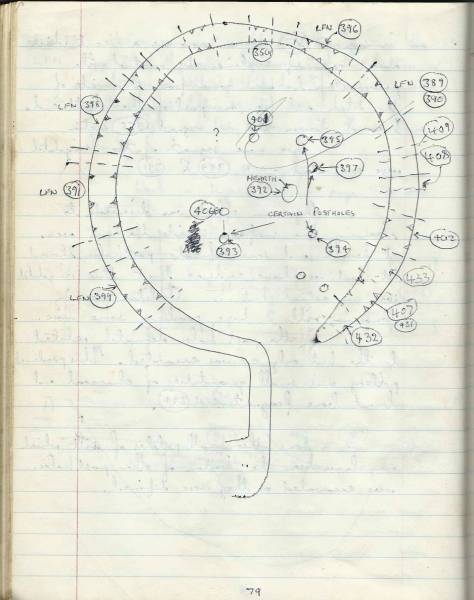 LFN 396
354
LFN 389
390
LFN 398
409
401
?
395
408
397
LFN 391
HEARTH
392
406
CERTAIN POSTHOLES
402
393
394
423
LFN 399
407
431
432
79